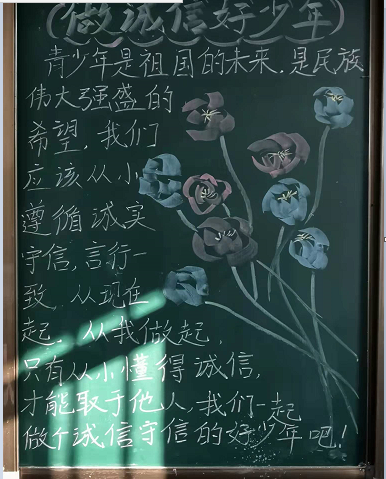 (做诚信好少年)
青少年是祖国的未来,是民族
伟大强盛的
希望,我们
应该从小
遵循诚实
守信,言行一
致,从现在
起,从我做起,
只有从小懂得诚信,
才能取于他人,我们一起
做个诚信守信的好少年吧!